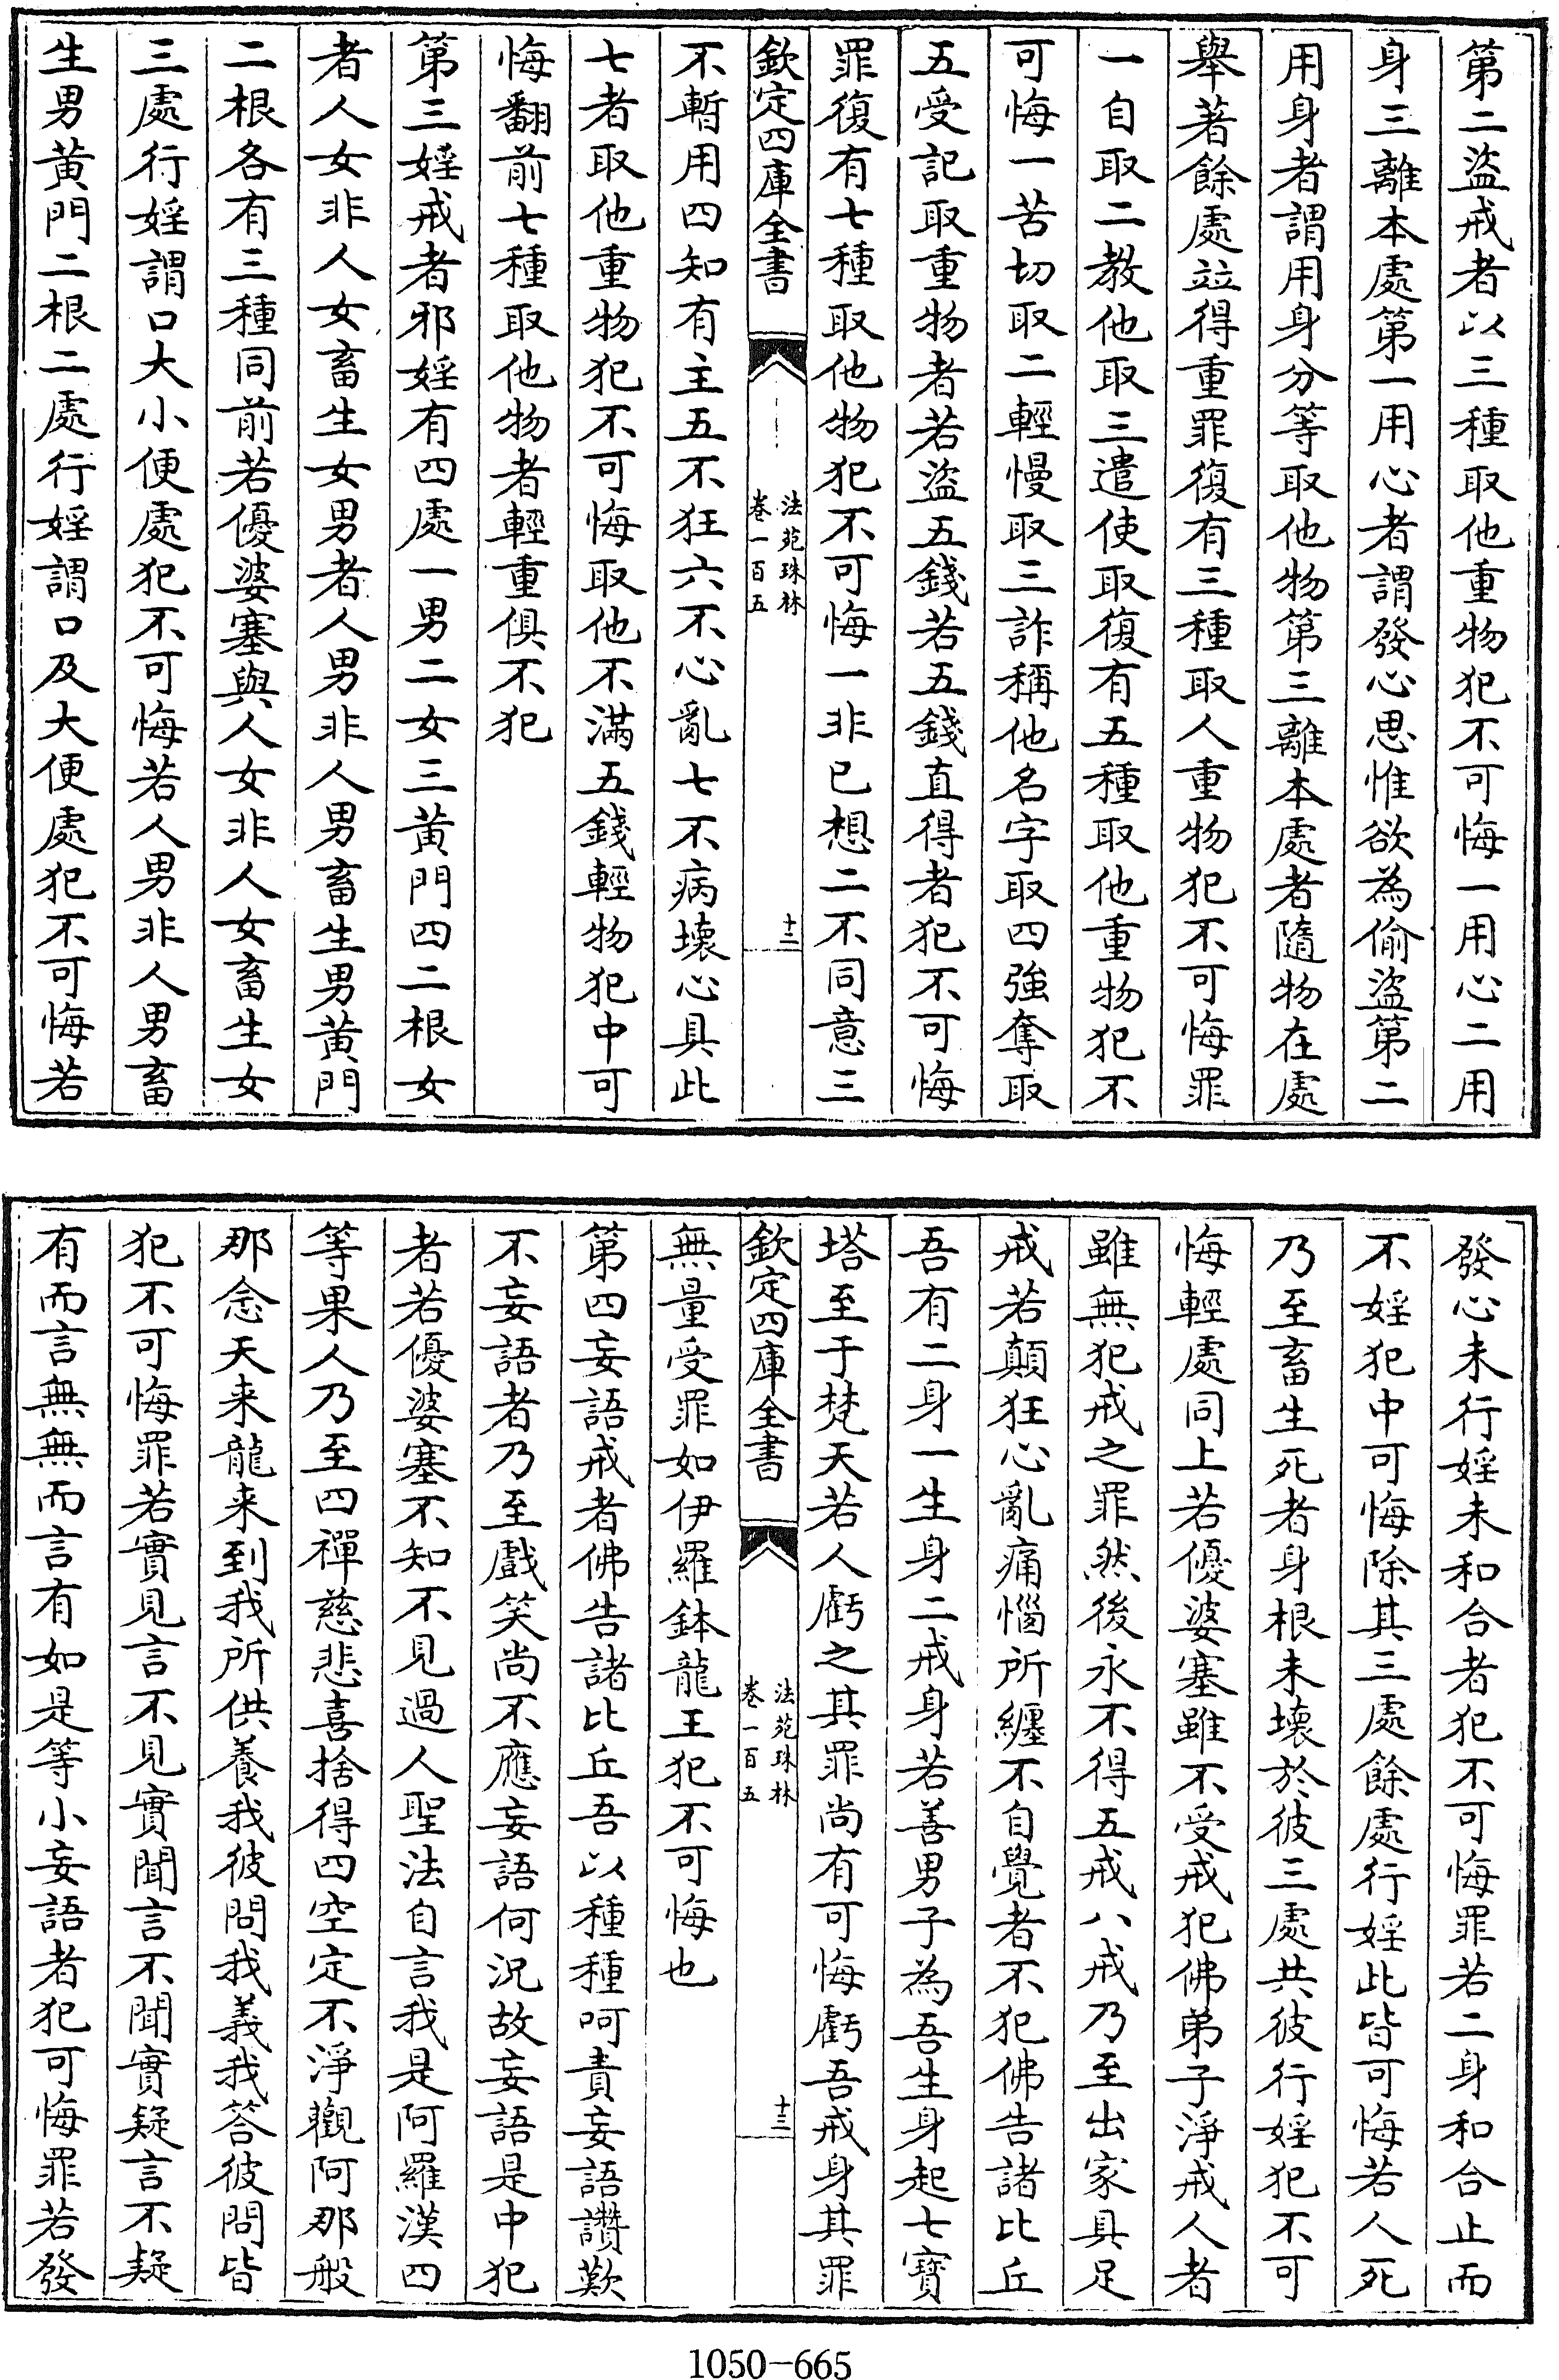 第二盜戒者以三種取他重物犯不可悔一用心二用
身三離本處第一用心者謂發心思惟欲為偷盜第二
用身者謂用身分等取他物第三離本處者隨物在處
舉著餘處竝得重罪復有三種取人重物犯不可悔罪
一自取二教他取三遣使取復有五種取他重物犯不
可悔一苦切取二輕慢取三詐稱他名字取四強奪取
五受記取重物者若盜五錢若五錢直得者犯不可悔
罪復有七種取他物犯不可悔一非已想二不同意三
欽定四庫全書
法苑珠林
卷一百五
十二
不暫用四知有主五不狂六不心亂七不病壞心具此
七者取他重物犯不可悔取他不滿五錢輕物犯中可
悔翻前七種取他物者輕重俱不犯
第三婬戒者邪婬有四處一男二女三黃門四二根女
者人女非人女畜生女男者人男非人男畜生男黃門
二根各有三種同前若優婆塞與人女非人女畜生女
三處行婬謂口大小便處犯不可悔若人男非人男畜
生男黃門二根二處行婬謂口及大便處犯不可悔若
發心未行婬未和合者犯不可悔罪若二身和合止而
不婬犯中可悔除其三處餘處行婬此皆可悔若人死
乃至畜生死者身根未壞於彼三處共彼行婬犯不可
悔輕處同上若優婆塞雖不受戒犯佛弟子淨戒人者
雖無犯戒之罪然後永不得五戒八戒乃至出家具足
戒若顛狂心亂痛惱所纏不自覺者不犯佛告諸比丘
吾有二身一生身二戒身若善男子為吾生身起七寶
塔至于梵天若人虧之其罪尚有可悔虧吾戒身其罪
欽定四庫全書
法苑珠林
卷一百五
十三
無量受罪如伊羅鉢龍王犯不可悔也
第四妄語戒者佛告諸比丘吾以種種呵責妄語讚歎
不妄語者乃至戲笑尚不應妄語何況故妄語是中犯
者若優婆塞不知不見過人聖法自言我是阿羅漢四
等果人乃至四禪慈悲喜捨得四空定不淨觀阿那般
那念天来龍来到我所供養我彼問我義我答彼問皆
犯不可悔罪若實見言不見實聞言不聞實疑言不疑
有而言無無而言有如是等小妄語者犯可悔罪若發
1050-665